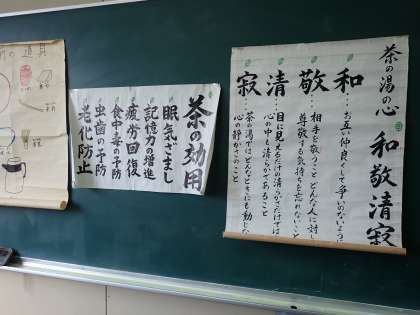 茶の湯の心 和敬清寂
和…お互い仲良くして争いのないように
敬…相手を敬うことどんな人に対し
尊敬する気持ちを忘れないこと
清…目に見えるだけの清らかさだけでは
心の中も清らかであること
寂…茶の湯ではどんなときにも動じな
心の静かさのこと
茶の効用
眠気ざまし
記憶力の増進
疲労回復
食中毒の予防
虫歯の予防
老化防止
の道具